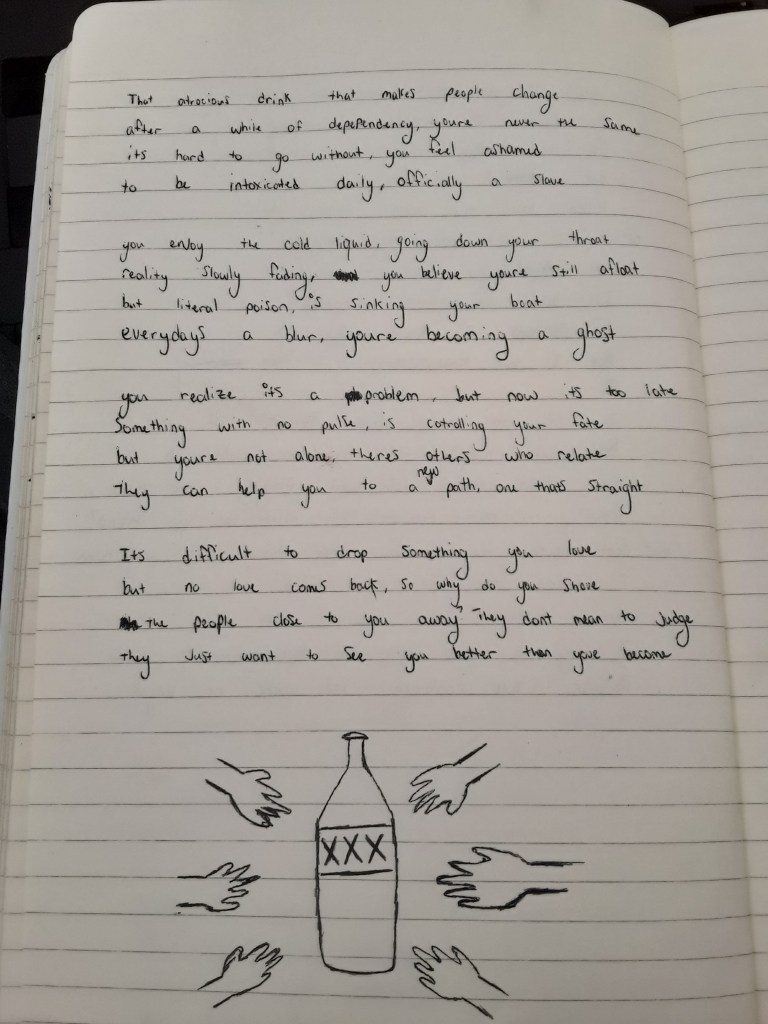 That atrocious drink that makes people change
after a while of depependency, youre never the same
its hard to go without, you feel ashamed
to be intoxicated daily, officially a slave
you enjoy the cold liquid, going down your throat
reality slowly fading, you believe youre still afloat
but literal poison, is sinking your boat
everydays a blur, youre becoming a ghost
you realize its a problem, but now its too late
Something with no pulse, is cotrolling your fate
but youre not alone, theres others who relate
They can help you to a new path, one thats straight
Its difficult to drop something you love
but no love coms back, so why do you shove
the people close to you away? They dont mean to judge
They Just want to see you better than youve become
XXX